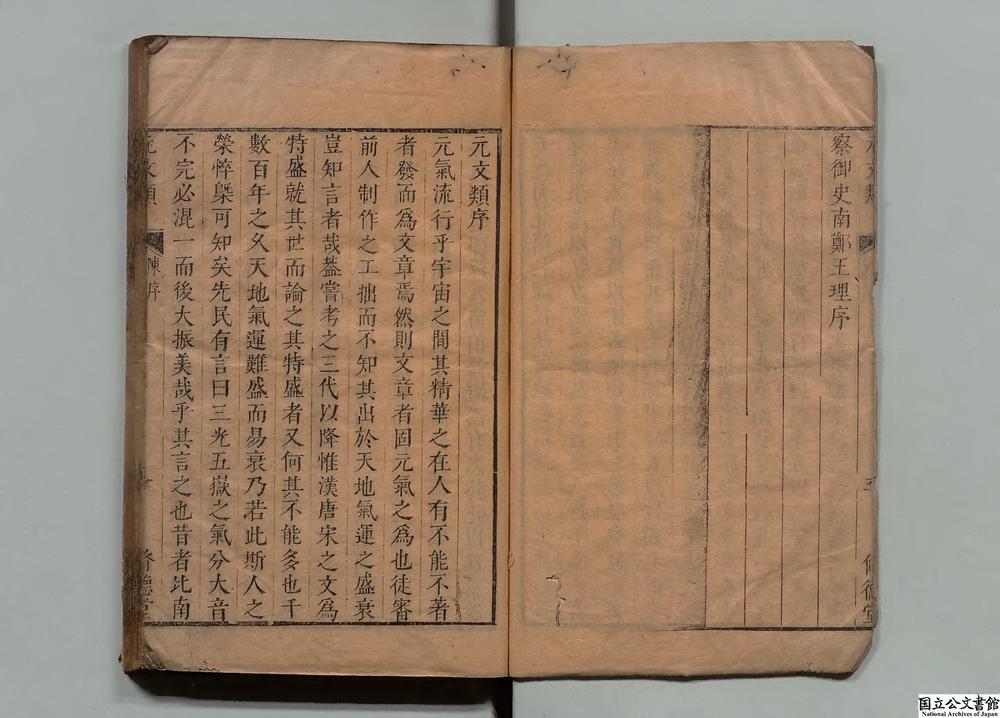 察御史南鄭王理序
脩德堂
元文類序
元氣流行乎宇宙之間其精華之在人有不能不著
者發而爲文章焉然則文章者固元氣之爲也徒審
前人制作之工拙而不知其出於天地氣運之盛衰
豈知言者哉葢嘗考之三代以降惟漢唐宋之文爲
特盛就其世而論之其特盛者又何其不能多也千
數百年之久天地氣運難盛而易衰乃若此斯人之
榮悴槩可知矣先民有言曰三光五嶽之氣分大音
不完必混一而後大振美哉乎其言之也昔者北南
元文類
陳序
脩德堂
国立公文書館
National Archives of Japan